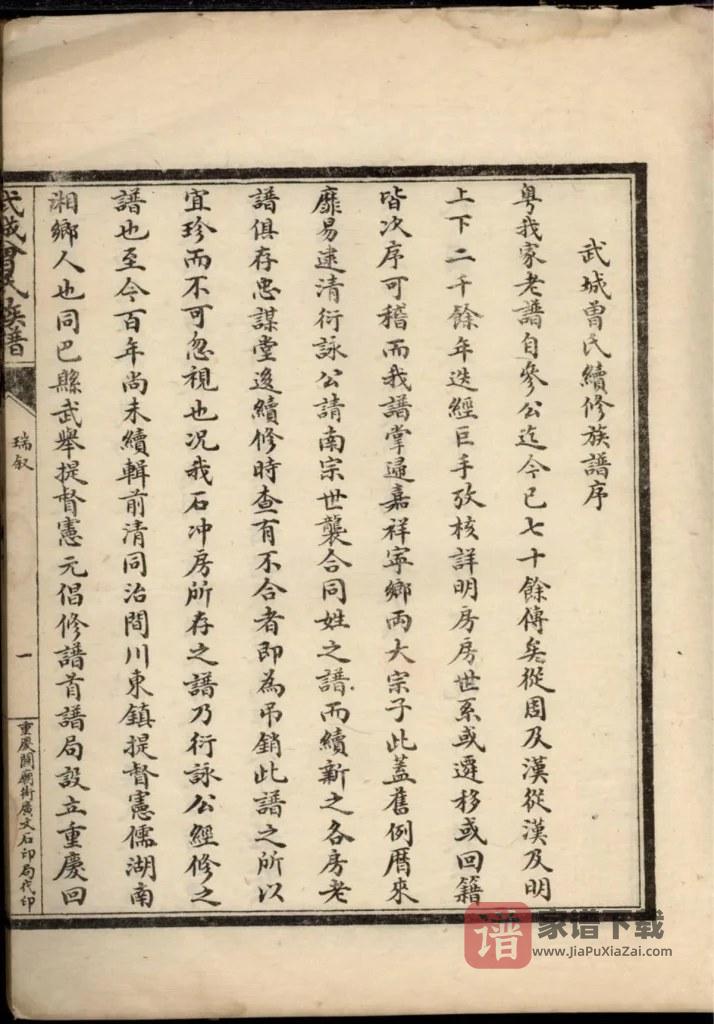 武城曾氏續修族譜序
粤我家老譜自參公迄今已七十餘傳矣從周及漢從漢及明
上下二千餘年迭經巨手攷核詳明房房世系或遷移或回籍
皆次序可稽而我譜掌歸嘉祥寧鄉兩大宗子此蓋舊例曆來
靡易逮清衍詠公請南宗世襲合同姓之譜而續新之各房老
譜俱存忠謀堂後續修時查有不合者即為吊銷此譜之所以
宜珍而不可忽視也况我石冲房所存之譜乃衍詠公經修之
譜也至今百年尚未續輯前清同治間川東鎮提督憲儒湖南
湘鄉人也同巴縣武舉提督憲元倡修譜首譜局設立重慶回
武城曾氏族譜
瑞叙
一
重慶關廟街廣文石印局代印
谱 家谱下载
www.JiaPuXiaZai.com